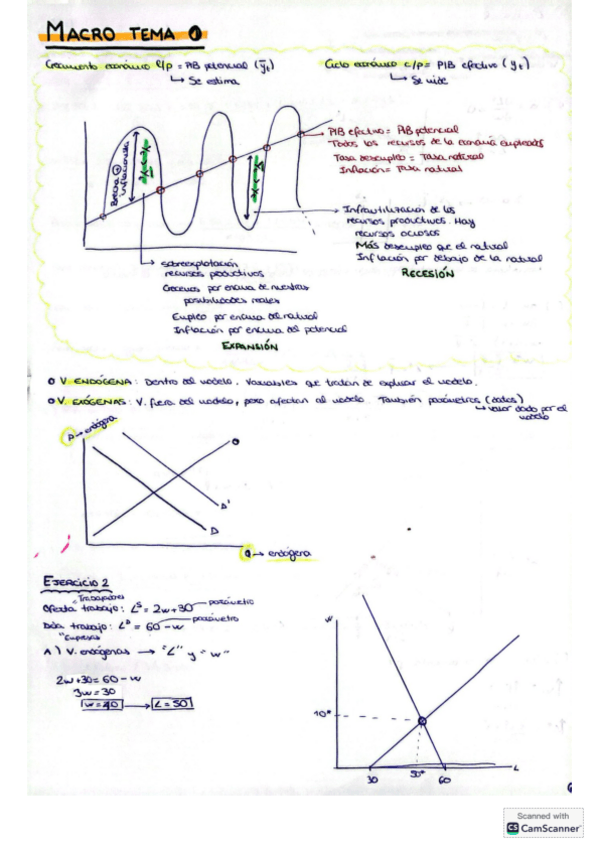 MACRO TEMA 1
Crecimiento económico l/p = PIB potencial (ȳt)
↳ Se estima
Ciclo económico c/p = PIB efectivo (yt)
↳ Se mide
Brecha ⊕
inflacionista
PIB efectivo = PIB potencial
Todos los recursos de la economía empleados
Tasa desempleo = Tasa natural
Inflación = Tasa natural
Infrautilización de los
recursos productivos. Hay
recursos ociosos
Más desempleo que el natural
Inflación por debajo de la natural
RECESIÓN
Sobreexplotación
recursos productivos
Crecemos por encima de nuestras
posibilidades reales
Empleo por encima del natural
Inflación por encima del potencial
EXPANSIÓN
O V. ENDÓGENA: Dentro del modelo. Variables que tratan de explicar el modelo.
O V. EXÓGENAS: V. fuera del modelo, pero afectan al modelo. También parámetros (datos)
↳ valor dado por el
modelo
P → endógena
O
D'
D
Q → endógena
EJERCICIO 2
"Trabajadores
Oferta trabajo: Lˢ = 2w + 30 — parámetro
Dda trabajo: Lᴰ = 60 - w — parámetro
"Empresas
A) V. endógenas → "L" y "w"
2w + 30 = 60 - w
3w = 30
w = 10 → L = 50
W
10*
30
50*
60
L
Scanned with
CS CamScanner